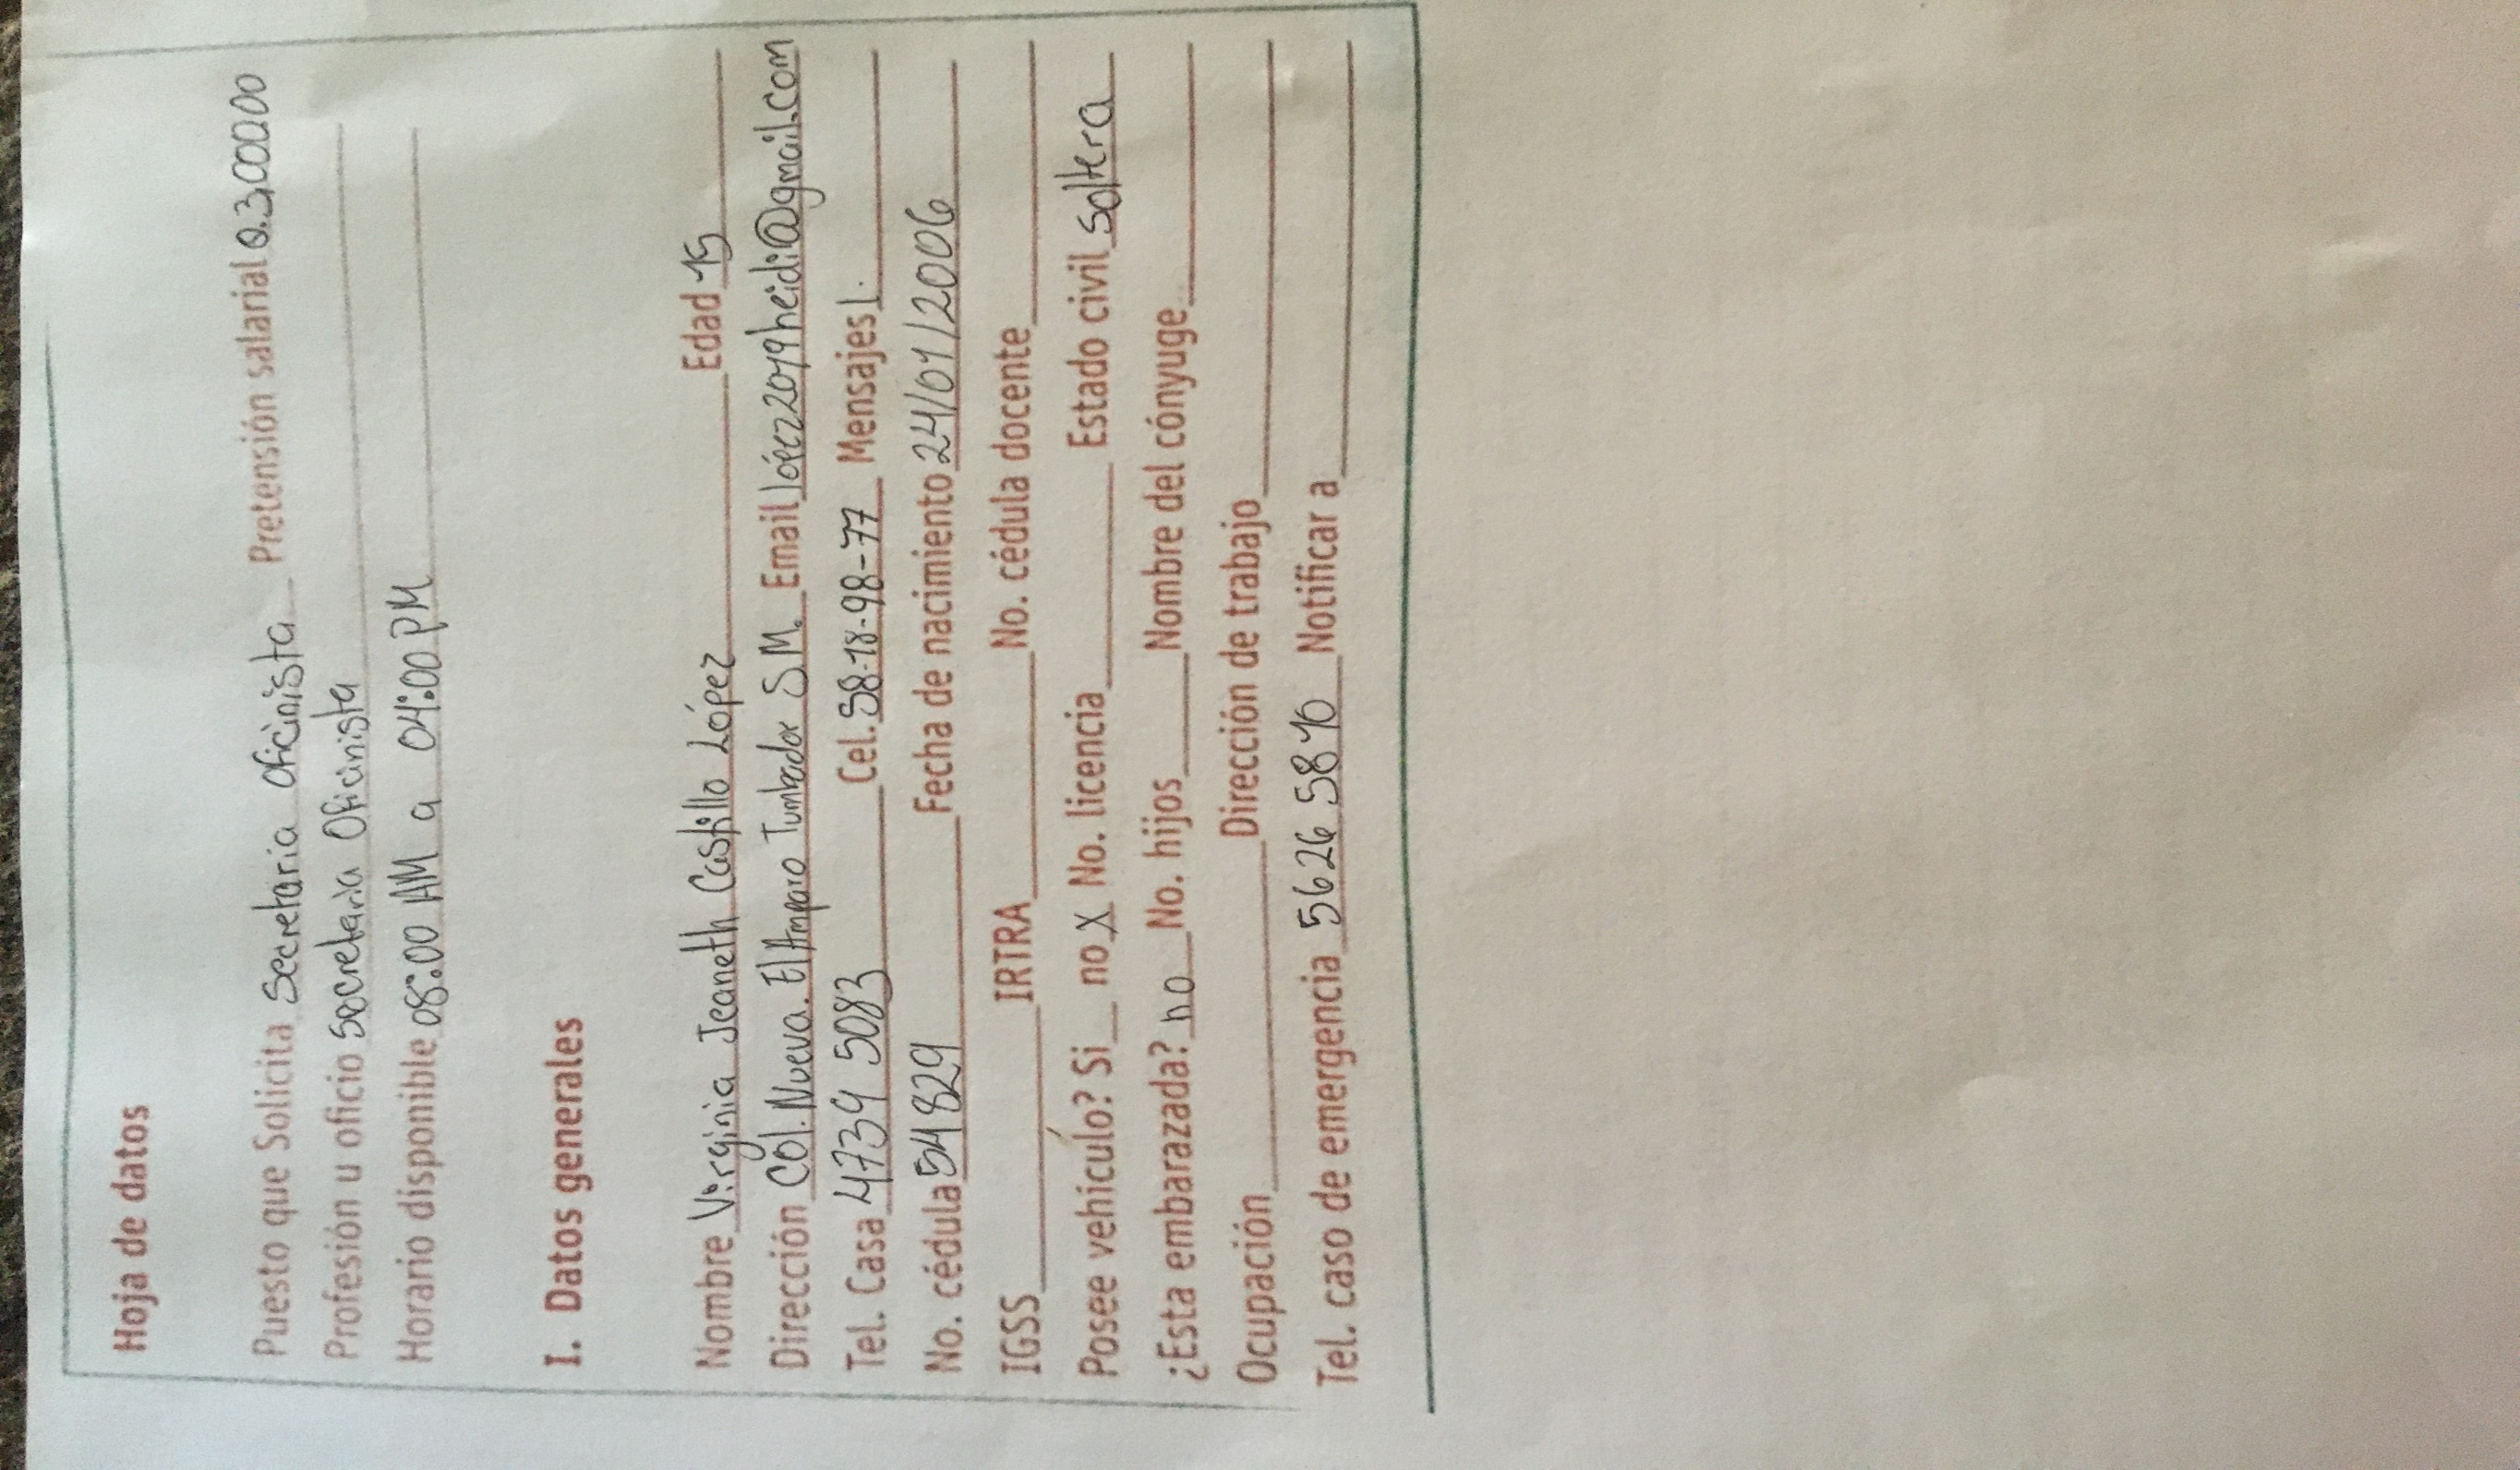 Hoja de datos
Puesto que Solicita Secretaria Oficinista Pretensión salarial Q.3,000.00
Profesión u oficio Secretaria Oficinista
Horario disponible 08:00 AM a 04:00 PM
I. Datos generales
Nombre Virginia Jeaneth Castillo López Edad 15
Dirección Col. Nueva. El Amparo Tumbador S.M. Email lópez2019heidi@gmail.com
Tel. Casa 4739 5083 Cel. 58-18-98-77 Mensajes 1.
No. cédula 54829 Fecha de nacimiento 24/01/2006
IGSS IRTRA No. cédula docente
Posee vehículo? Si no X No. licencia Estado civil soltera
¿Esta embarazada? no No. hijos Nombre del cónyuge
Ocupación Dirección de trabajo
Tel. caso de emergencia 5626 5810 Notificar a